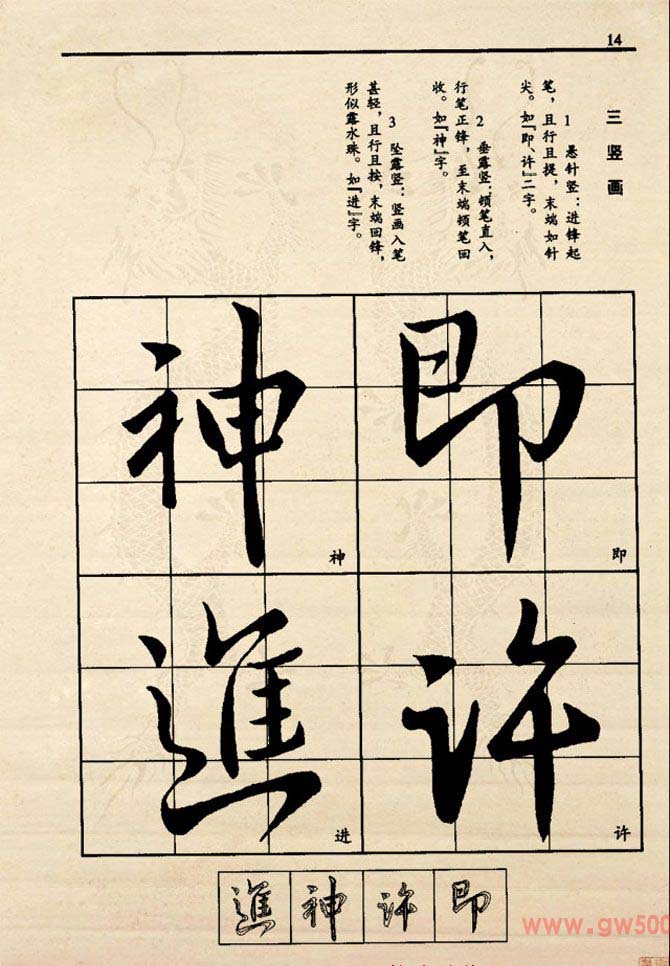 14
三 竖画
1 悬针竖：进锋起
笔，且行且提，末端如针
尖。如『即、许』二字。
2 垂露竖：顿笔直入，
行笔正锋，至末端顿笔回
收。如『神』字。
3 坠露竖：竖画入笔
甚轻，且行且按，末端回锋，
形似露水珠。如『进』字。
即
即
许
许
神
神
進
进
即
许
神
進
www.gw500